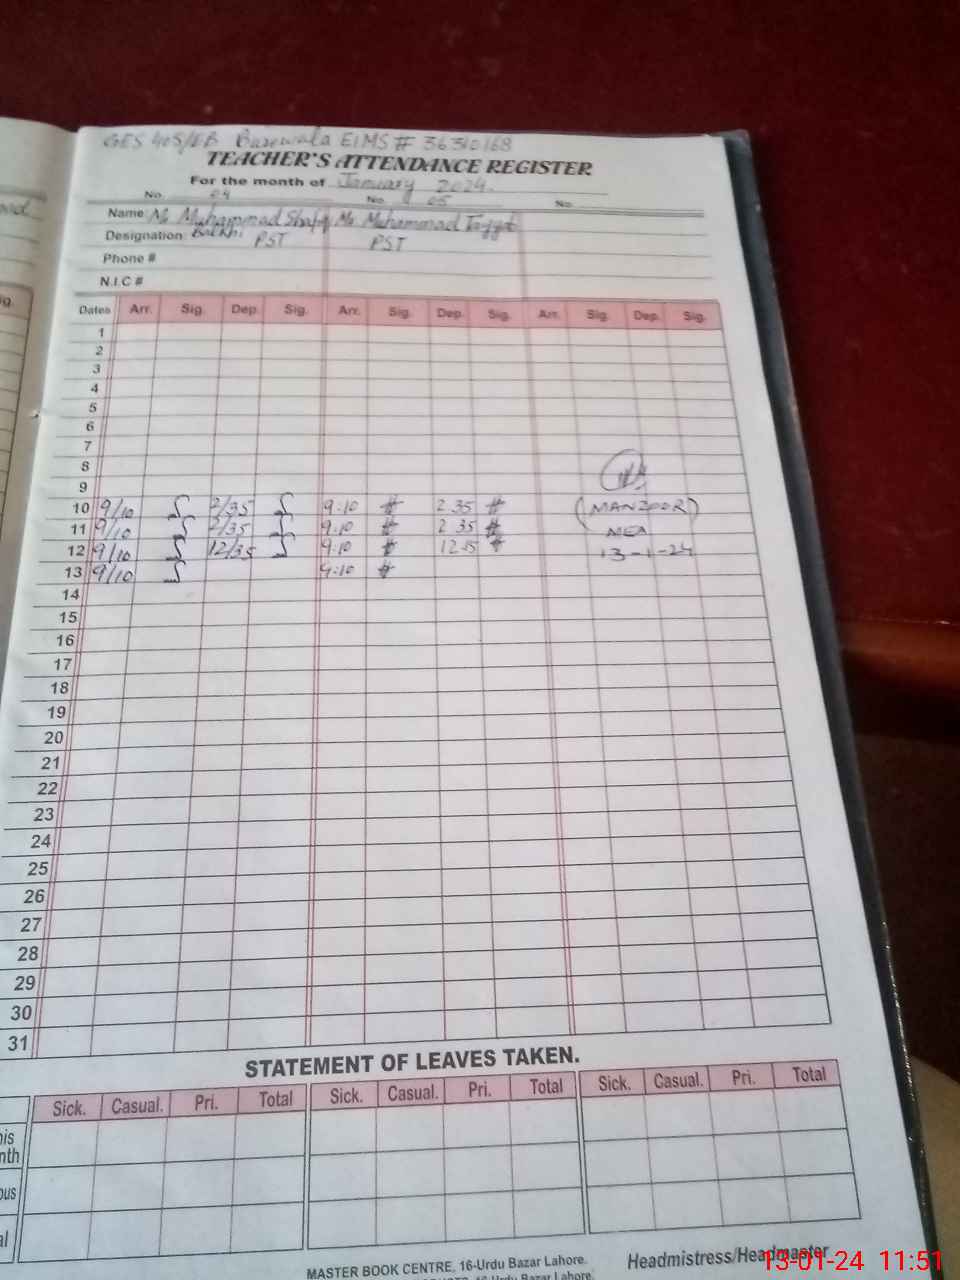 GES 405/EB Burewala EIMS # 36310168
TEACHER'S ATTENDANCE REGISTER
For the month of January 2024.
No. 04 No. 05 No.
Name: Mr Muhammad Shafiq Mr. Muhammad Tayyab
Designation: PST PST
Phone #
N.I.C #
Dates Arr. Sig. Dep. Sig. Arr. Sig. Dep. Sig. Arr. Sig. Dep. Sig.
1
2
3
4
5
6
7
8
9
10 9/10 2/35 9:10 2.35 (MANZOOR)
11 9/10 2/35 9:10 2.35 MEA
12 9/10 12/35 9:10 13-1-24
13 9/10 9:10
14
15
16
17
18
19
20
21
22
23
24
25
26
27
28
29
30
31
STATEMENT OF LEAVES TAKEN.
Sick. Casual. Pri. Total Sick. Casual. Pri. Total Sick. Casual. Pri. Total
MASTER BOOK CENTRE, 16-Urdu Bazar Lahore.
Headmistress/Headmaster
13-01-24 11:51